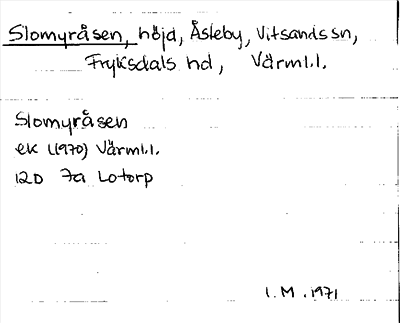 Slomyråsen, höjd, Åsleby, Vitsands sn,
Fryksdals hd, Värml.l.
Slomyråsen
ek (1970) Värml.l.
12D 7a Lotorp
I.M. 1971